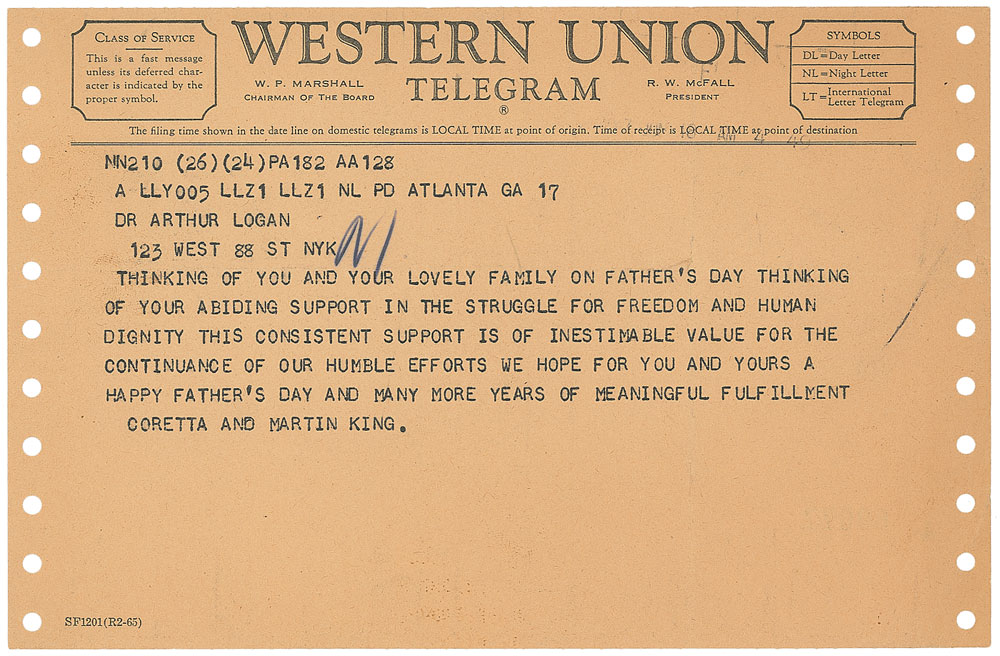 CLASS OF SERVICE
This is a fast message
unless its deferred char-
acter is indicated by the
proper symbol.
WESTERN UNION
TELEGRAM
®
W. P. MARSHALL
CHAIRMAN OF THE BOARD
R. W. McFALL
PRESIDENT
SYMBOLS
DL=Day Letter
NL=Night Letter
LT=International Letter Telegram
The filing time shown in the date line on domestic telegrams is LOCAL TIME at point of origin. Time of receipt is LOCAL TIME at point of destination
NN210 (26)(24)PA182 AA128
A LLY005 LLZ1 LLZ1 NL PD ATLANTA GA 17
DR ARTHUR LOGAN
123 WEST 88 ST NYK
THINKING OF YOU AND YOUR LOVELY FAMILY ON FATHER'S DAY THINKING
OF YOUR ABIDING SUPPORT IN THE STRUGGLE FOR FREEDOM AND HUMAN
DIGNITY THIS CONSISTENT SUPPORT IS OF INESTIMABLE VALUE FOR THE
CONTINUANCE OF OUR HUMBLE EFFORTS WE HOPE FOR YOU AND YOURS A
HAPPY FATHER'S DAY AND MANY MORE YEARS OF MEANINGFUL FULFILLMENT
CORETTA AND MARTIN KING.
SF1201(R2-65)